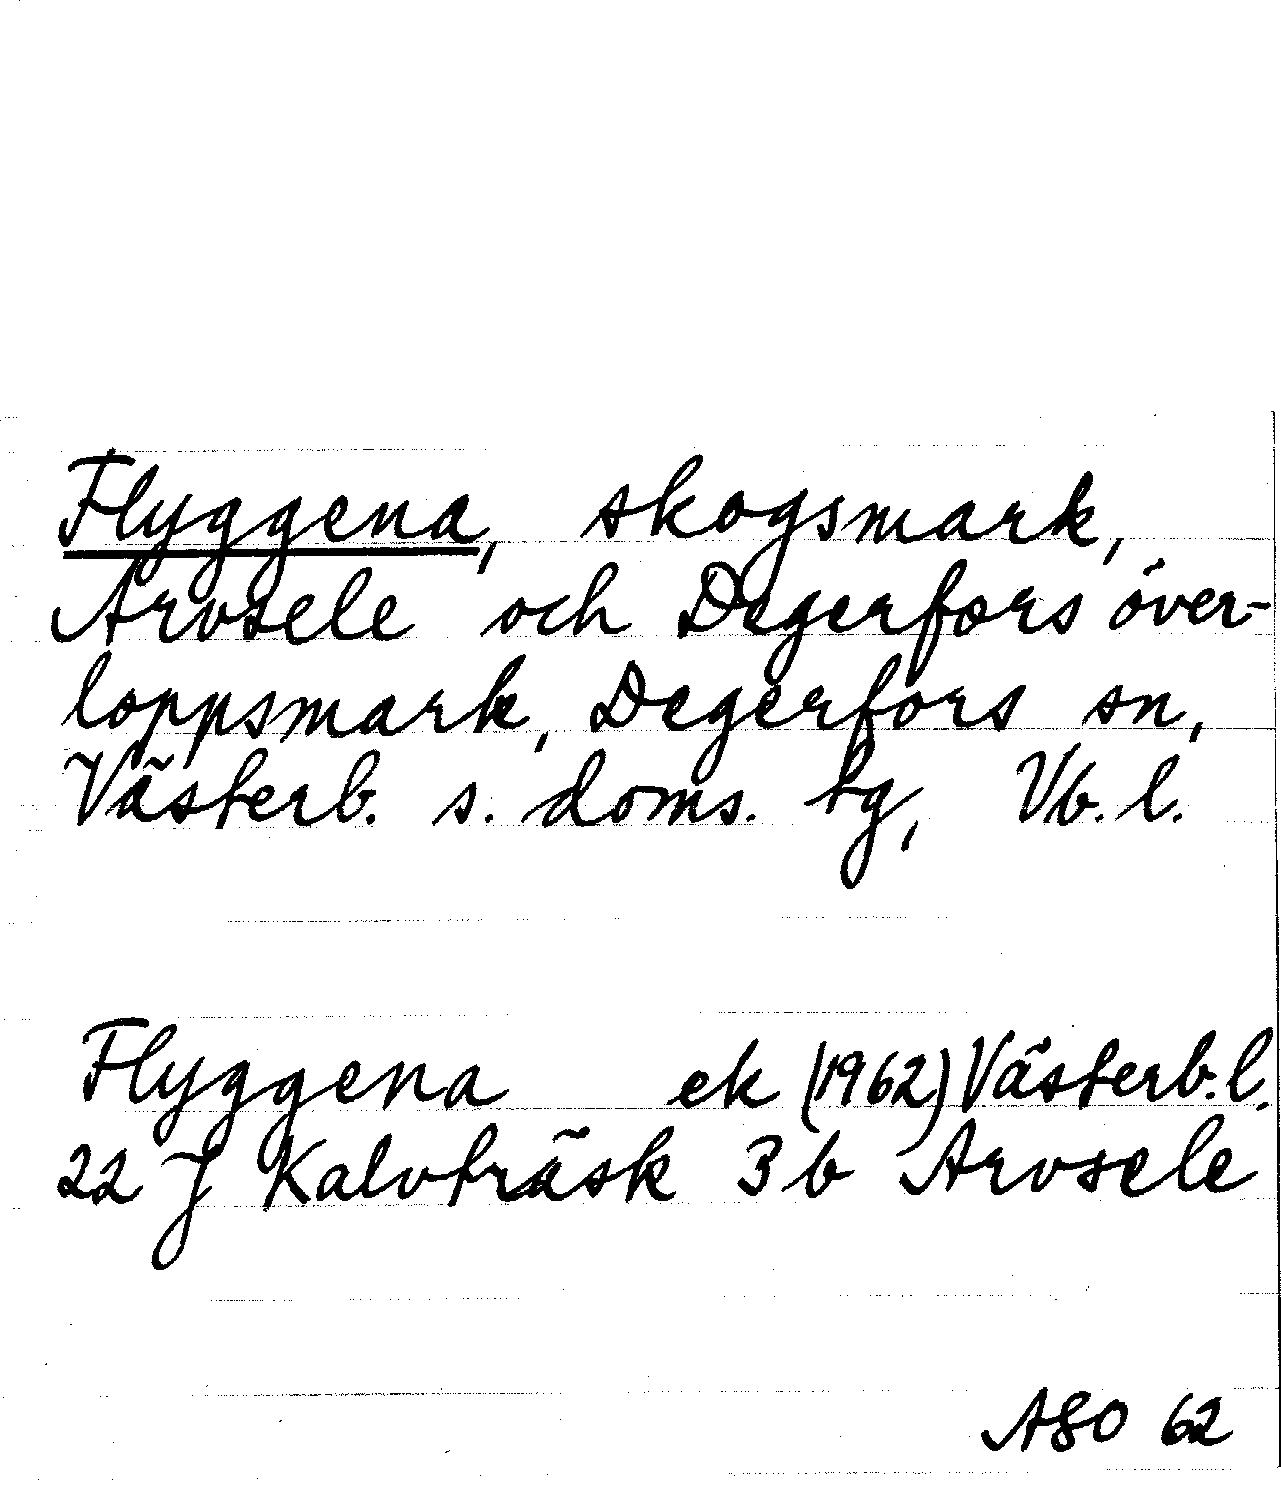 Flyggena, skogsmark,
Arvsele och Degerfors över-
loppsmark, Degerfors sn,
Västerb. s. doms. tg, Vb. l.
Flyggena ek (1962) Västerb. l.
22 J Kalvträsk 3 b Arvsele
ASO 62